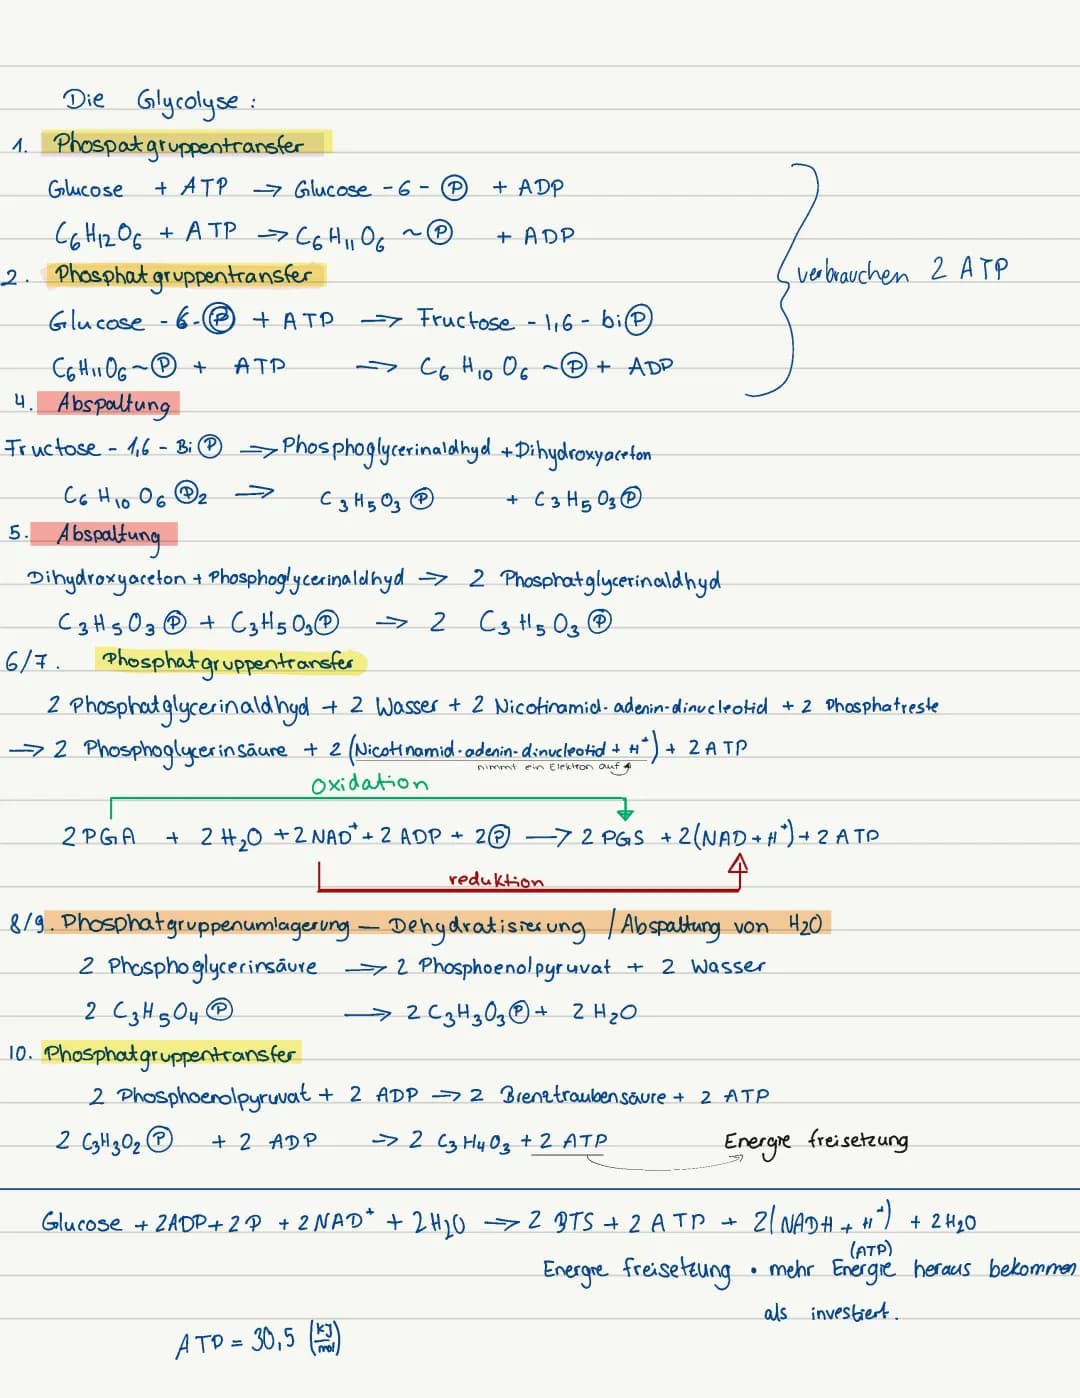 Die Glycolyse :
1. Phospatgruppentransfer
Glucose + ATP → Glucose - 6 - Ⓟ + ADP
C6H12O6 + ATP → C6H11O6 ~Ⓟ + ADP
2. Phosphatgruppentransfer
Glucose - 6-Ⓟ + ATP → Fructose - 1,6 - biⓅ
C6H11O6~Ⓟ + ATP → C6H10O6 ~Ⓟ + ADP
verbrauchen 2 ATP
4. Abspaltung
Fructose - 1,6 - BiⓅ → Phosphoglycerinaldhyd + Dihydroxyaceton
C6H10O6Ⓟ2 → C3H5O3Ⓟ + C3H5O3Ⓟ
5. Abspaltung
Dihydroxyaceton + Phosphoglycerinaldhyd → 2 Phosphatglycerinaldhyd
C3H5O3Ⓟ + C3H5O3Ⓟ → 2 C3H5O3Ⓟ
6/7. Phosphatgruppentransfer
2 Phosphatglycerinaldhyd + 2 Wasser + 2 Nicotinamid-adenin-dinucleotid + 2 Phosphatreste
→ 2 Phosphoglycerinsäure + 2 (Nicotinamid-adenin-dinucleotid + H⁺) + 2 ATP
nimmt ein Elektron auf
Oxidation
2 PGA + 2 H2O + 2 NAD⁺ + 2 ADP + 2Ⓟ → 2 PGS + 2(NAD + H⁺) + 2 ATP
reduktion
8/9. Phosphatgruppenumlagerung – Dehydratisierung / Abspaltung von H2O
2 Phosphoglycerinsäure → 2 Phosphoenolpyruvat + 2 Wasser
2 C3H5O4Ⓟ → 2 C3H3O3Ⓟ + 2 H2O
10. Phosphatgruppentransfer
2 Phosphoenolpyruvat + 2 ADP → 2 Brenztraubensäure + 2 ATP
2 C3H3O2Ⓟ + 2 ADP → 2 C3H4O3 + 2 ATP Energie freisetzung
Glucose + 2ADP + 2 P + 2 NAD⁺ + 2H2O → 2 BTS + 2 ATP + 2(NADH + H⁺) + 2 H2O
(ATP)
Energie freisetzung • mehr Energie heraus bekommen
als investiert.
ATP = 30,5 (kJ/mol)